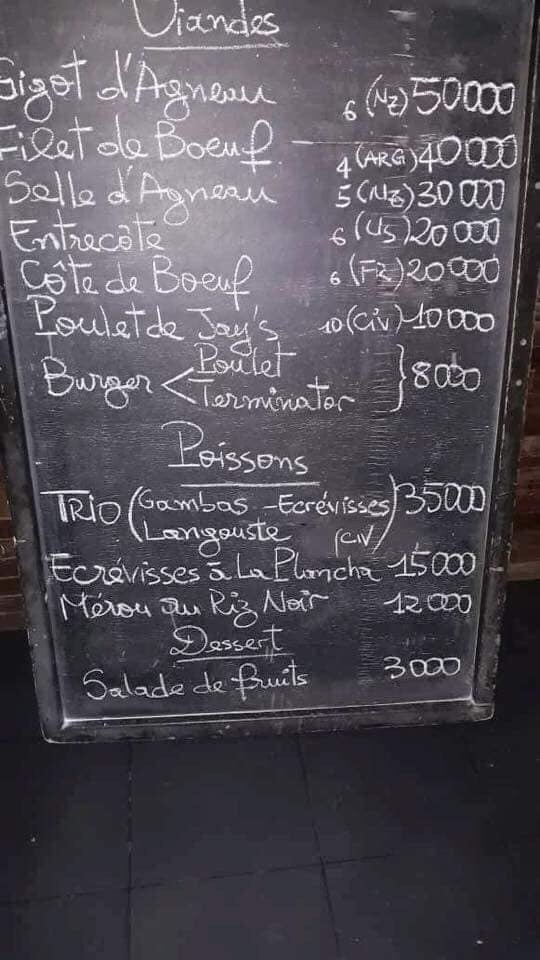 Viandes
Gigot d'Agneau 6 (NZ) 50000
Filet de Boeuf - 4 (ARG) 40000
Selle d'Agneau 5 (NZ) 30000
Entrecôte 6 (US) 20000
Côte de Boeuf 6 (FR) 20000
Poulet de Jay's 10 (CIV) 10000
Burger < Poulet } 8000
Terminator
Poissons
TRIO (Gambas - Ecrévisses) 35000
Langouste (CIV)
Ecrévisses à La Plancha 15000
Mérou au Riz Noir 12000
Dessert
Salade de fruits 3000